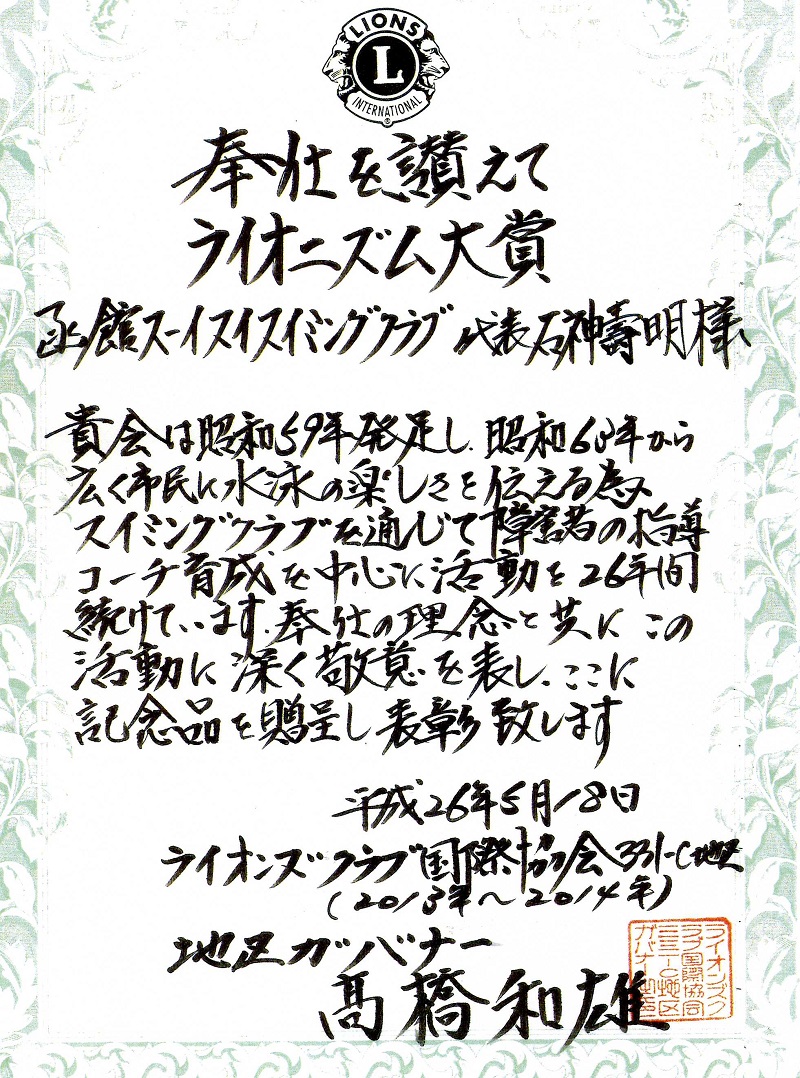 LIONS
L
INTERNATIONAL
奉仕を讃えて
ライオニズム大賞
函館スーイスイスイミングクラブ 代表 石神壽明様
貴会は昭和59年発足し、昭和63年から
広く市民に水泳の楽しさを伝える為
スイミングクラブを通じて障害者の指導
コーチ育成を中心に活動を26年間
続けています。奉仕の理念と共にこの
活動に深く敬意を表し、ここに
記念品を贈呈し表彰致します
平成26年5月18日
ライオンズクラブ国際協会331-C地区
(2013年~2014年)
地区ガバナー
高橋和雄
ライオンズク
ラブ国際協会
三三一C地区